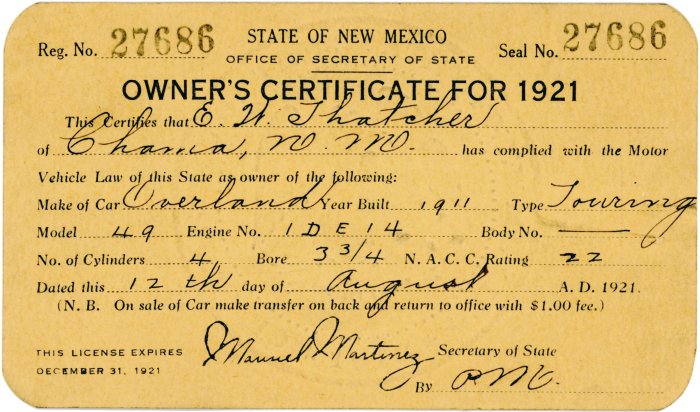 Reg. No. 27686 STATE OF NEW MEXICO Seal No. 27686
OFFICE OF SECRETARY OF STATE
OWNER'S CERTIFICATE FOR 1921
This Certifies that E. W. Thatcher
of Chama, N. M. has complied with the Motor
Vehicle Law of this State as owner of the following:
Make of Car Overland Year Built 1911 Type Touring
Model 49 Engine No. 1 D E 14 Body No. —
No. of Cylinders 4 Bore 3 3/4 N. A. C. C. Rating 22
Dated this 12th day of August A. D. 1921.
(N. B. On sale of Car make transfer on back and return to office with $1.00 fee.)
THIS LICENSE EXPIRES Manuel Martinez Secretary of State
DECEMBER 31, 1921 By